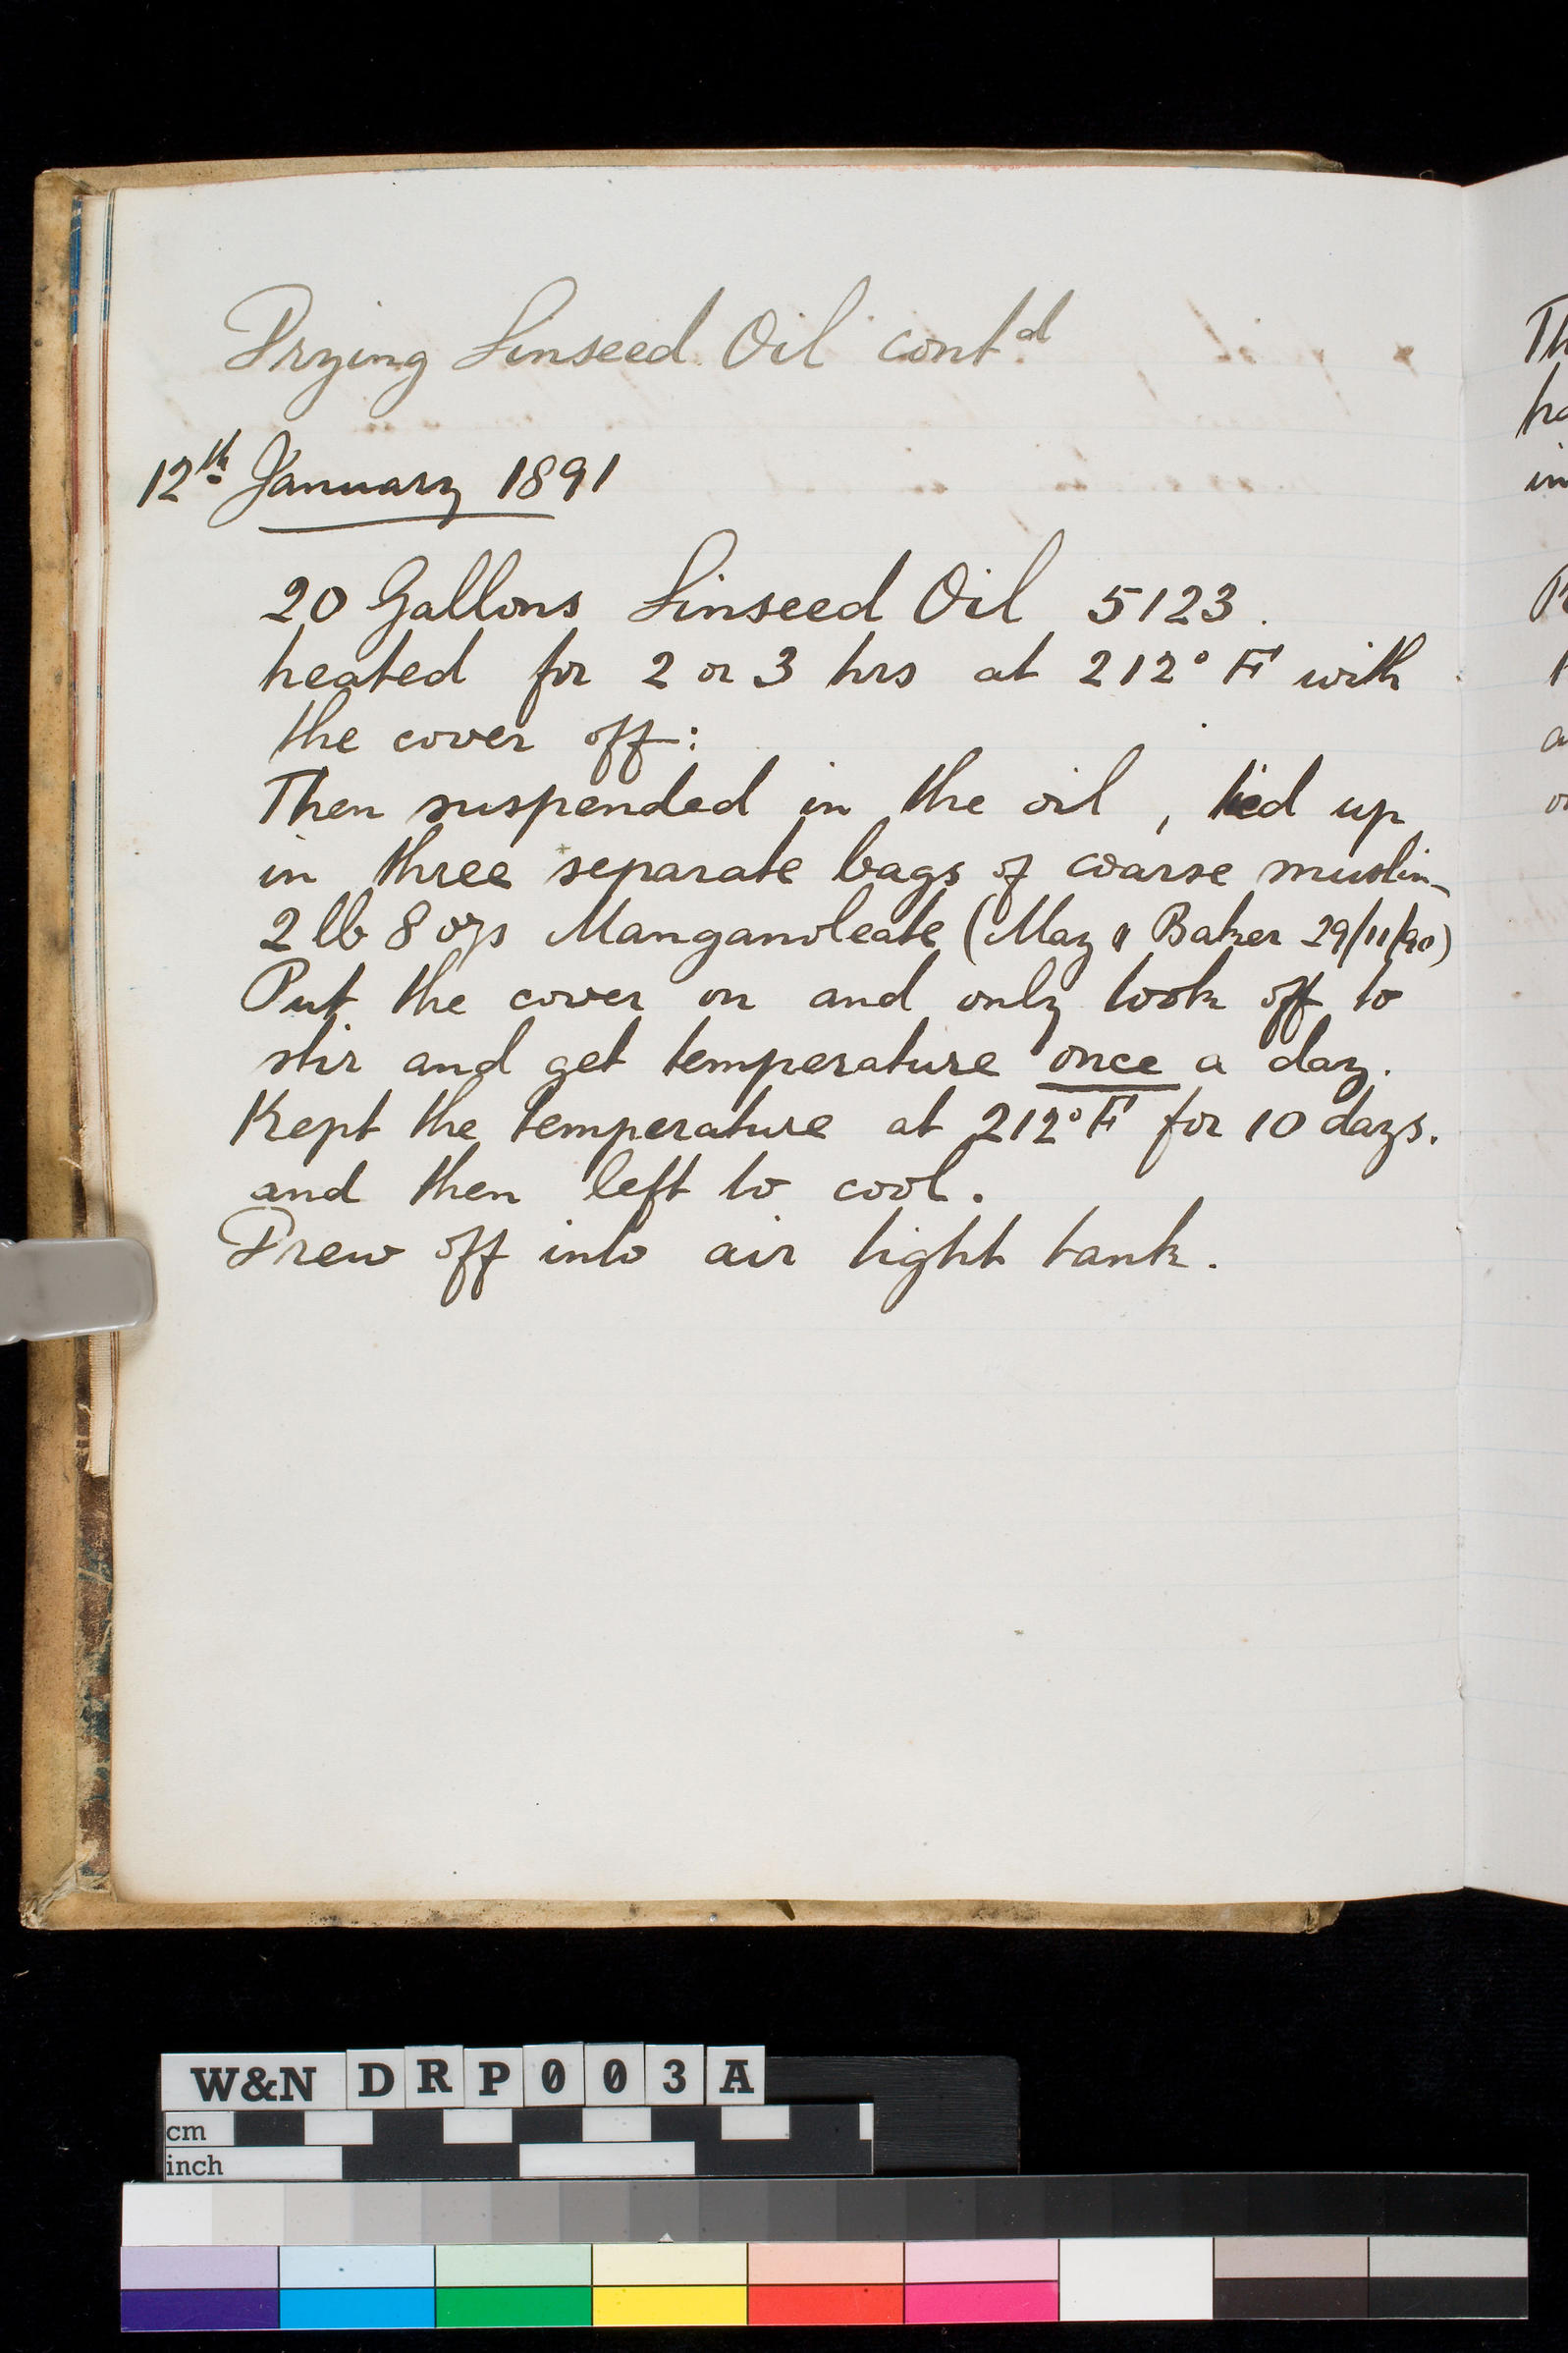 Drying Linseed Oil contd
12th January 1891
20 Gallons Linseed Oil 5123.
heated for 2 or 3 hrs at 212° F with
the cover off:
Then suspended in the oil, tied up
in three separate bags of coarse muslin
2 lb 8 ozs Manganoleate (May & Baker 29/11/90)
Put the cover on and only took off to
stir and get temperature once a day.
Kept the temperature at 212° F for 10 days.
and then left to cool.
Drew off into air tight tank.
W&N DRP003A
cm
inch